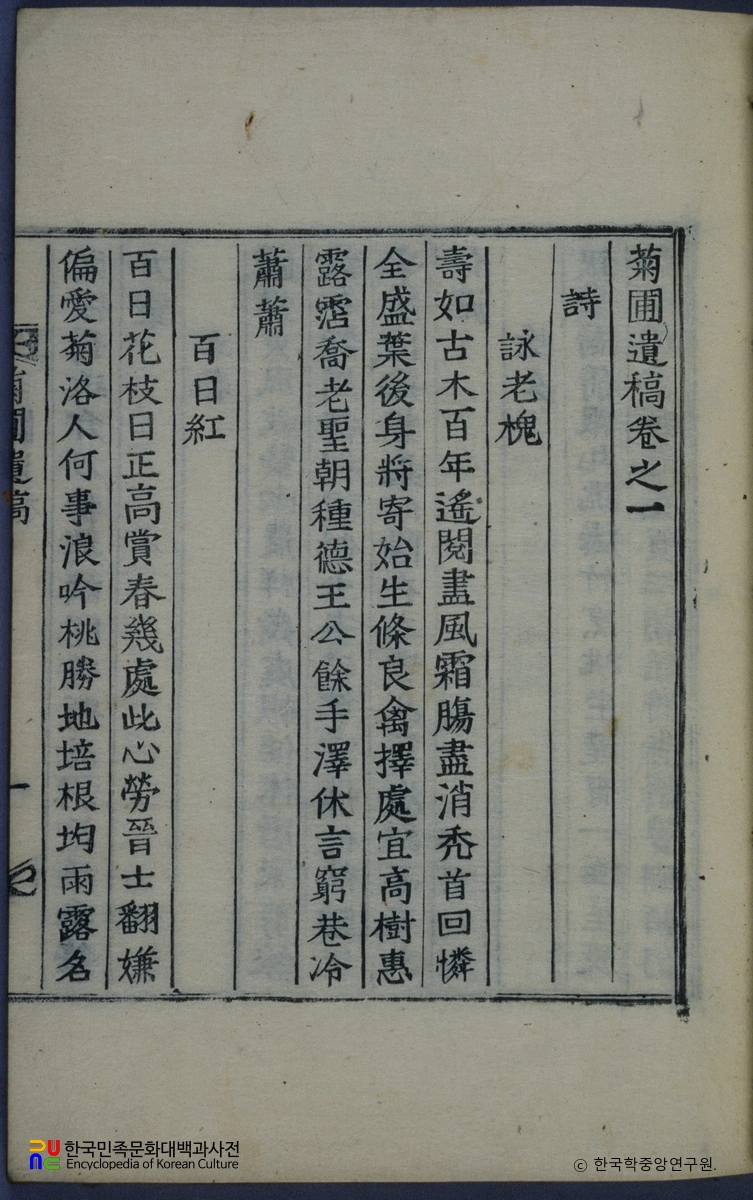 菊圃遺稿卷之一
詩
詠老槐
壽如古木百年遙閱盡風霜膓盡消禿首回憐
全盛葉後身將寄始生條良禽擇處宜高樹惠
露霑喬老聖朝種德王公餘手澤休言窮巷冷
蕭蕭
百日紅
百日花枝日正高賞春幾處此心勞晉士翻嫌
偏愛菊洛人何事浪吟桃勝地培根均雨露名
菊圃遺稿
一
한국민족문화대백과사전
Encyclopedia of Korean Culture
ⓒ 한국학중앙연구원.